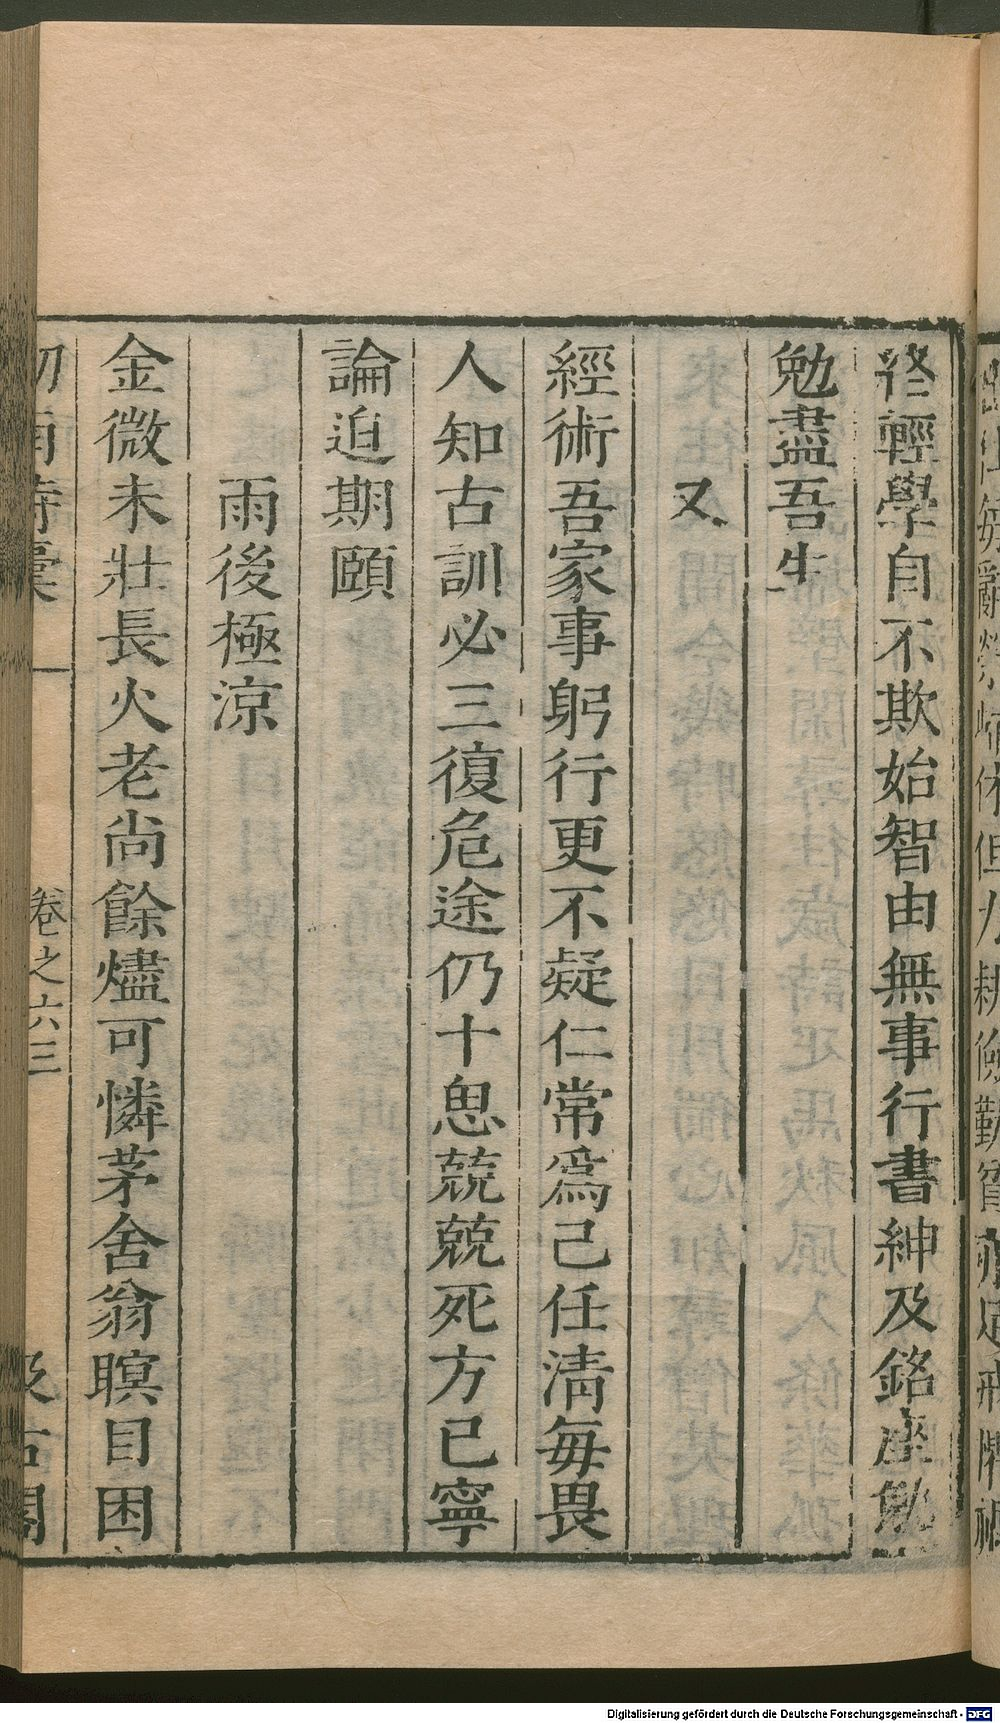 終輕學自不欺始智由無事行書紳及銘座勉
勉盡吾生
又
經術吾家事躬行更不疑仁常爲己任清每畏
人知古訓必三復危途仍十思兢兢死方已寧
論迫期頤
雨後極涼
金微未壯長火老尚餘燼可憐茅舍翁瞑目困
劒南詩稾
卷之六三
汲古閣
Digitalisierung gefördert durch die Deutsche Forschungsgemeinschaft - DFG